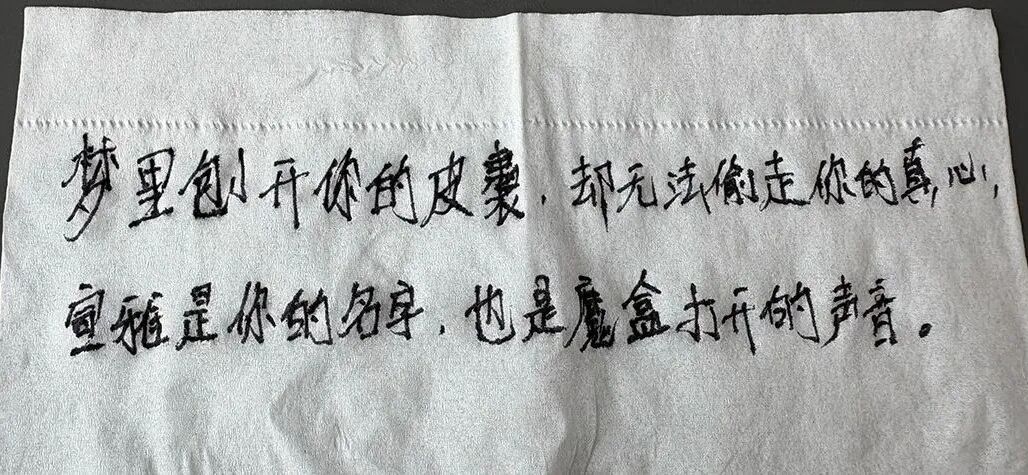 梦里刨开你的皮囊，却无法偷走你的真心，
宣雅是你的名字，也是魔盒打开的声音。